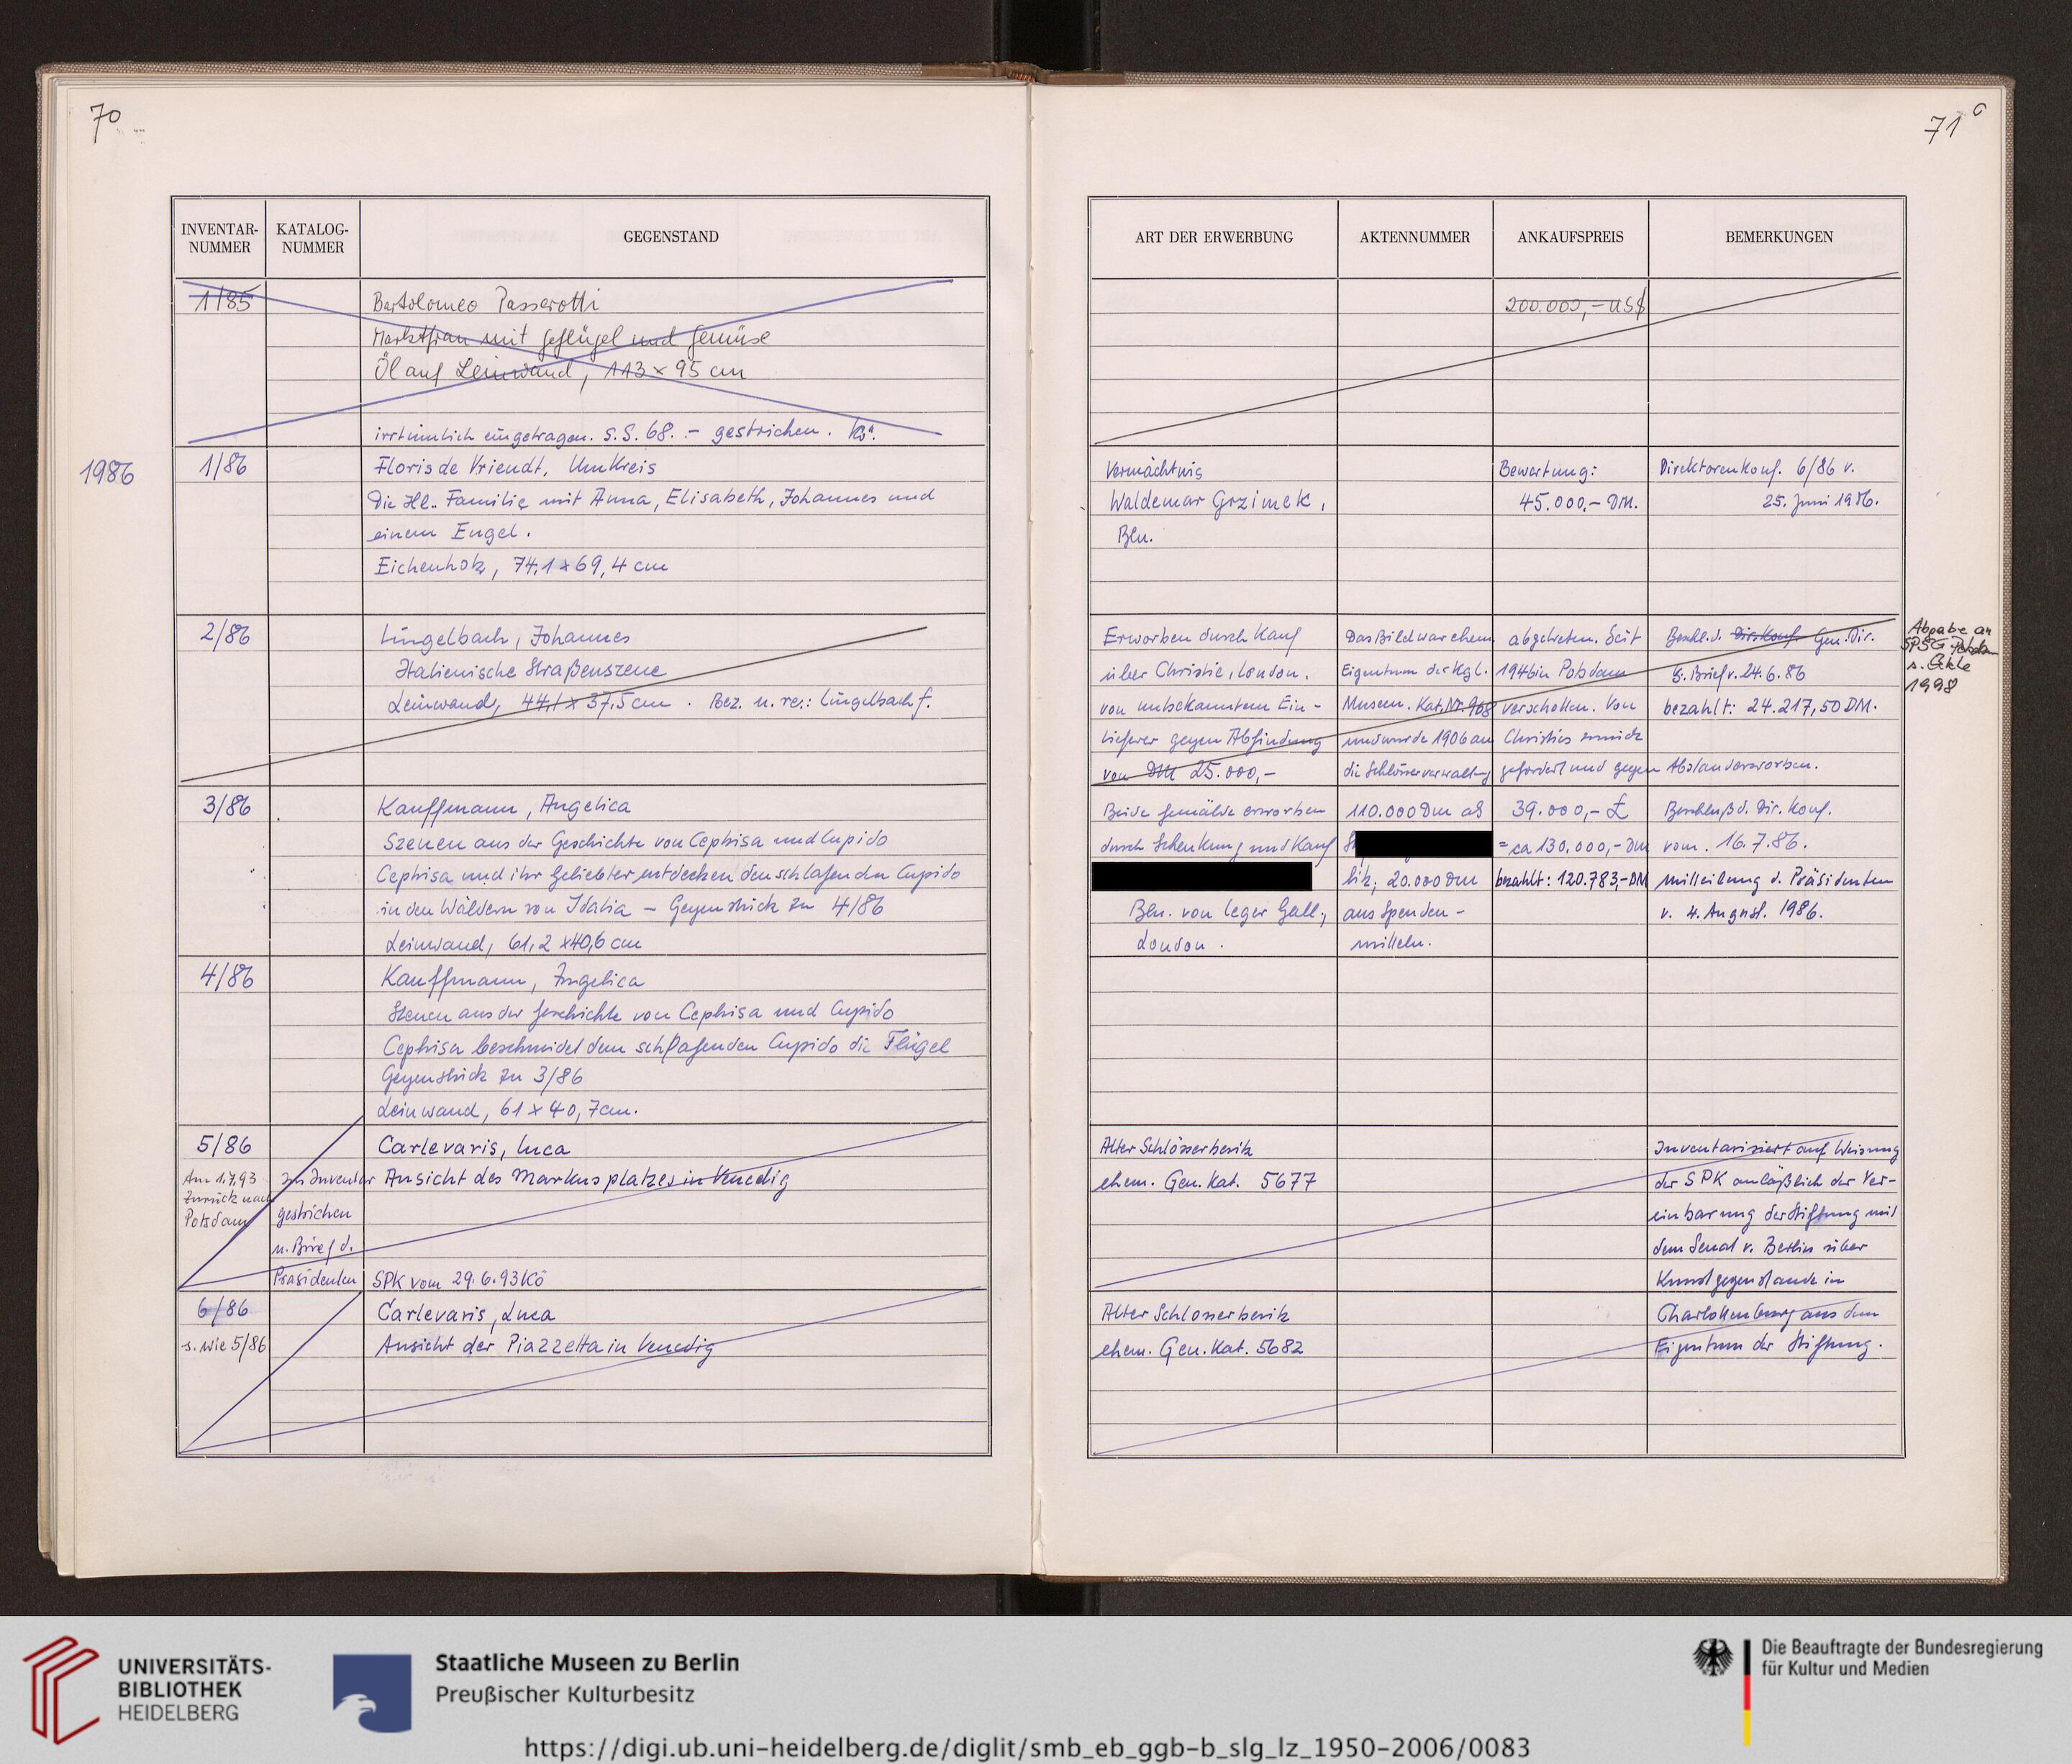 70
INVENTAR-
NUMMER
KATALOG-
NUMMER
GEGENSTAND
1/85
Bartolomeo Passerotti
Marktfrau mit Geflügel und Gemüse
Öl auf Leinwand, 113 x 95 cm
irrtümlich eingetragen. s. S. 68. - gestrichen.
1986
1/86
Floris de Vriendt, Umkreis
Die Hl. Familie mit Anna, Elisabeth, Johannes und
einem Engel.
Eichenholz, 74,1 x 69,4 cm
2/86
Lingelbach, Johannes
Italienische Straßenszene
Leinwand, 44,1 x 37,5 cm. Bez. u. re.: Lingelbach f.
3/86
Kauffmann, Angelica
Szenen aus der Geschichte von Cephisa und Cupido
Cephisa und ihr Geliebter entdecken den schlafenden Cupido
in den Wäldern von Idalia - Gegenstück zu 4/86
Leinwand, 61,2 x 40,6 cm
4/86
Kauffmann, Angelica
Szenen aus der Geschichte von Cephisa und Cupido
Cephisa beschneidet dem schlafenden Cupido die Flügel
Gegenstück zu 3/86
Leinwand, 61 x 40,7 cm.
5/86
Carlevaris, Luca
Am 1.7.93
zurück nach
Potsdam
Im Inventar
gestrichen
n. Brief d.
Präsidenten
Ansicht des Markusplatzes in Venedig
SPK vom 29.6.93 Kö
6/86
s. wie 5/86
Carlevaris, Luca
Ansicht der Piazzetta in Venedig
71
ART DER ERWERBUNG
AKTENNUMMER
ANKAUFSPREIS
BEMERKUNGEN
200.000,- US$
Vermächtnis
Waldemar Grzimek,
Bln.
Bewertung:
45.000,- DM.
Direktorenkonf. 6/86 v.
25. Juni 1986.
Erworben durch Kauf
über Christie, London,
von unbekanntem Ein-
lieferer gegen Abfindung
von DM 25.000,-
Das Bild war ehem.
Eigentum der Kgl.
Museen. Kat. Nr. 908
und wurde 1906 an
die Schlösserverwaltung
abgetreten. Seit
1946 in Potsdam
verschollen. Von
Christies zurück
gefordert und gegen Abstand erworben.
Beschl. d. Dir. Konf. Gen. Dir.
s. Brief v. 24.6.86
bezahlt: 24.217,50 DM.
Abgabe an
SPSG Potsdam
s. Akte
1998
Beide Gemälde erworben
durch Schenkung und Kauf
Bln. von Leger Gall.,
London.
110.000 DM als
20.000 DM
aus Spenden-
mitteln.
39.000,- £
= ca 130.000,- DM
bezahlt: 120.783,- DM
Beschluß d. Dir. Konf.
vom. 16.7.86.
Mitteilung d. Präsidenten
v. 4. August. 1986.
Alter Schlösserbesitz
ehem. Gen. Kat. 5677
Inventarisiert auf Weisung
der SPK anläßlich der Ver-
einbarung der Stiftung mit
dem Senat v. Berlin über
Kunstgegenstände in
Alter Schlösserbesitz
ehem. Gen. Kat. 5682
Charlottenburg aus dem
Eigentum der Stiftung.
UNIVERSITÄTS-
BIBLIOTHEK
HEIDELBERG
Staatliche Museen zu Berlin
Preußischer Kulturbesitz
Die Beauftragte der Bundesregierung
für Kultur und Medien
https://digi.ub.uni-heidelberg.de/diglit/smb_eb_ggb-b_slg_lz_1950-2006/0083